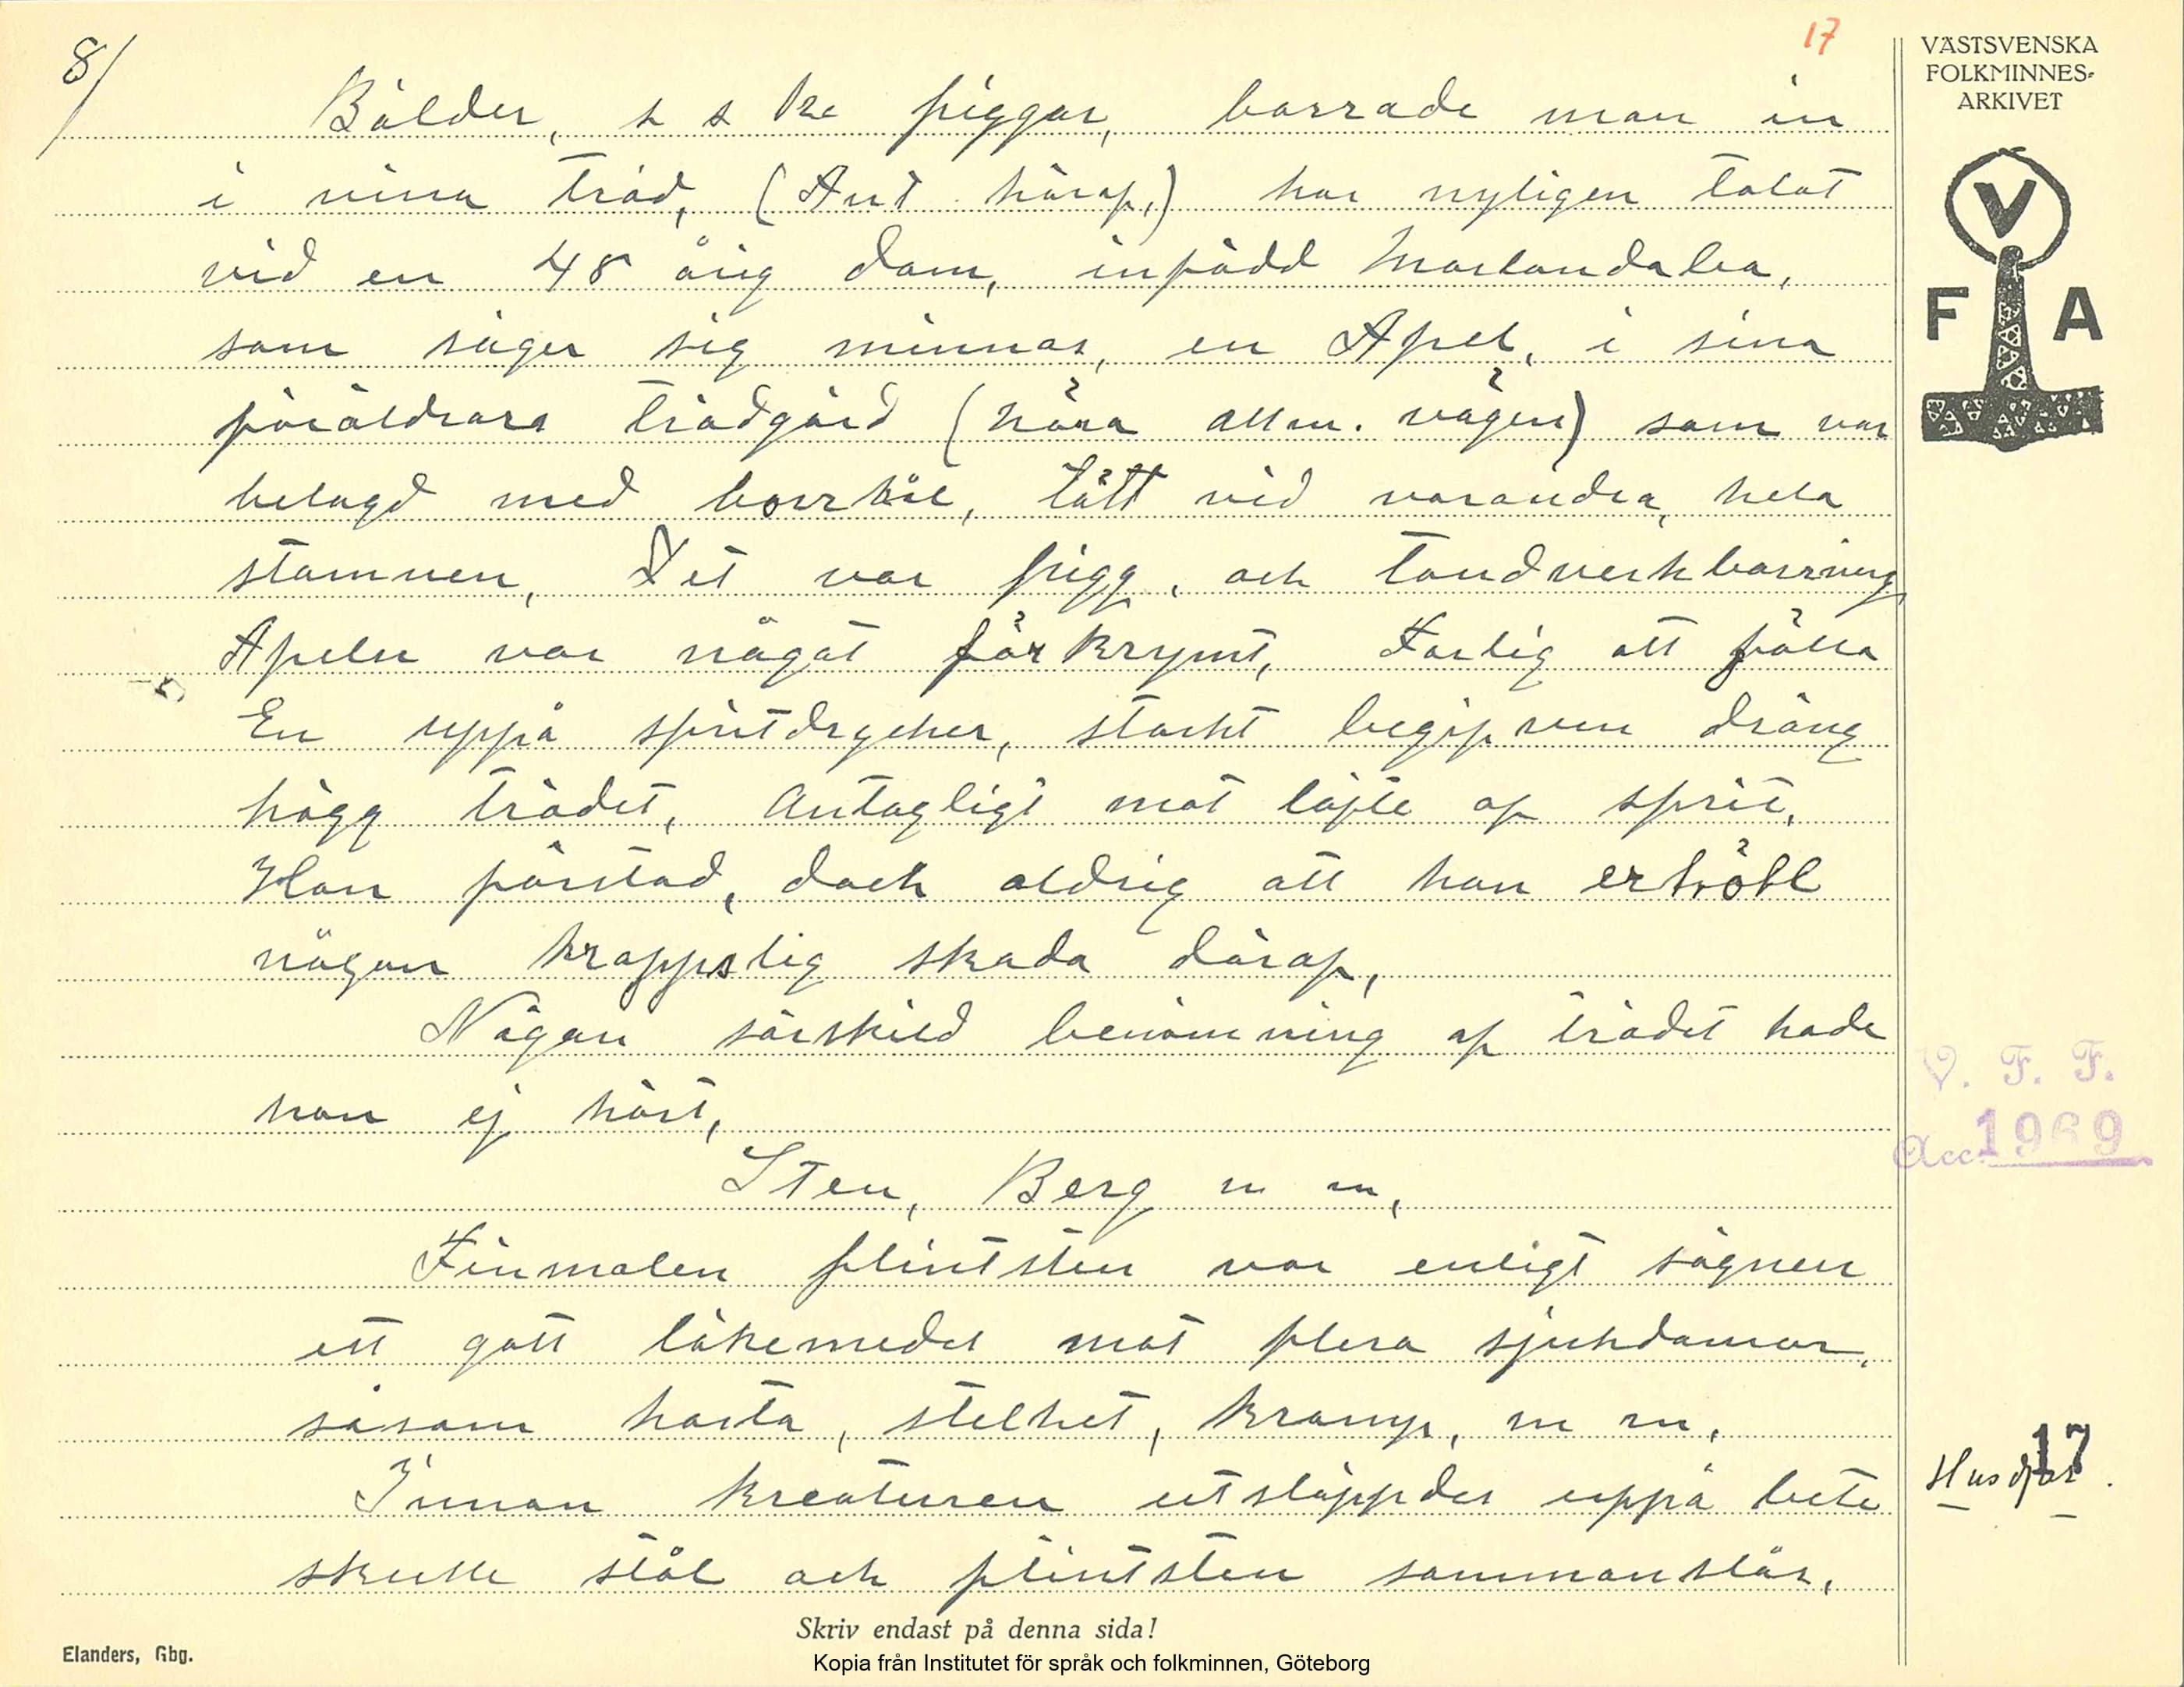 8/
17
VÄSTSVENSKA
FOLKMINNES-
ARKIVET
V
F A
Bölder, s s k. friggar, borrade man in
i vina träd, (Ant. häraf,) har nyligen talat
vid en 48 årig dam, infödd Morlandabo,
som säger sig minnas, en Apel, i sina
föräldrars trädgård (nära allm. vägen) som var
belagd med borrhål, tätt vid varandra, hela
stammen, Det var frigg, och tandverkborrning,
Apeln var något förkrymt, Farlig att fälla
En uppå spritdrycker, starkt begifven dräng
högg trädet, Antagligt mot löfte af sprit,
Han förstod, dock aldrig att han erhöll
någon kroppslig skada däraf,
Någon särskild benämning af trädet hade
hon ej hört,
Sten, Berg m m,
Finmalen flintsten var enligt sägnen
ett gott läkemedel mot flera sjukdomar,
såsom hosta, stelhet, kramp, m m,
Innan kreaturen utsläppdes uppå bete
skulle stål och flintsten sammanslås,
V. F. F.
Acc. 1969
17
Husdjur.
Skriv endast på denna sida!
Elanders, Gbg.
Kopia från Institutet för språk och folkminnen, Göteborg